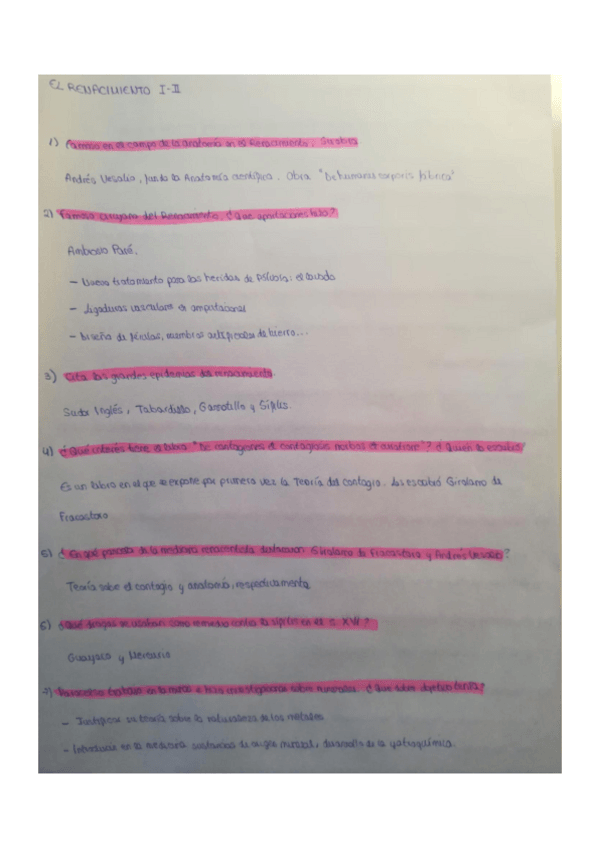 EL RENACIMIENTO I-II
1) Famoso en el campo de la anatomía en el Renacimiento. Su obra
Andrés Vesalio, funda la Anatomía científica. Obra "De humanis corporis fabrica"
2) Famoso cirujano del Renacimiento. ¿Qué aportaciones hizo?
Ambrosio Paré.
- Nuevo tratamiento para las heridas de pólvora: el
- Ligaduras vasculares en amputaciones
- Diseño de férulas, miembros artificiales de hierro...
3) Cita las grandes epidemias del renacimiento.
Sudor Inglés, Tabardillo, Garrotillo y Sífilis.
4) ¿Qué interés tiene el libro "De contagione et contagiosis morbis et curatione"? ¿Quién lo escribió
Es un libro en el que se expone por primera vez la Teoría del contagio. escribió Girolamo de
Fracastoro
5) ¿En qué parcela de la medicina renacentista destacaron Girolamo de Fracastoro y Andrés Vesalio?
Teoría sobre el contagio y anatomía, respectivamente
6) ¿Qué drogas se usaban como remedio contra la sífilis en el s. XVI?
Guayaco y Mercurio
7) Paracelso trabajó en la minas e hizo investigaciones sobre minerales. ¿Qué objetivo tenía?
- Justificar su teoría sobre la naturaleza de los metales
- Introducir en la medicina sustancias de origen mineral, desarrollo de la yatroquímica.